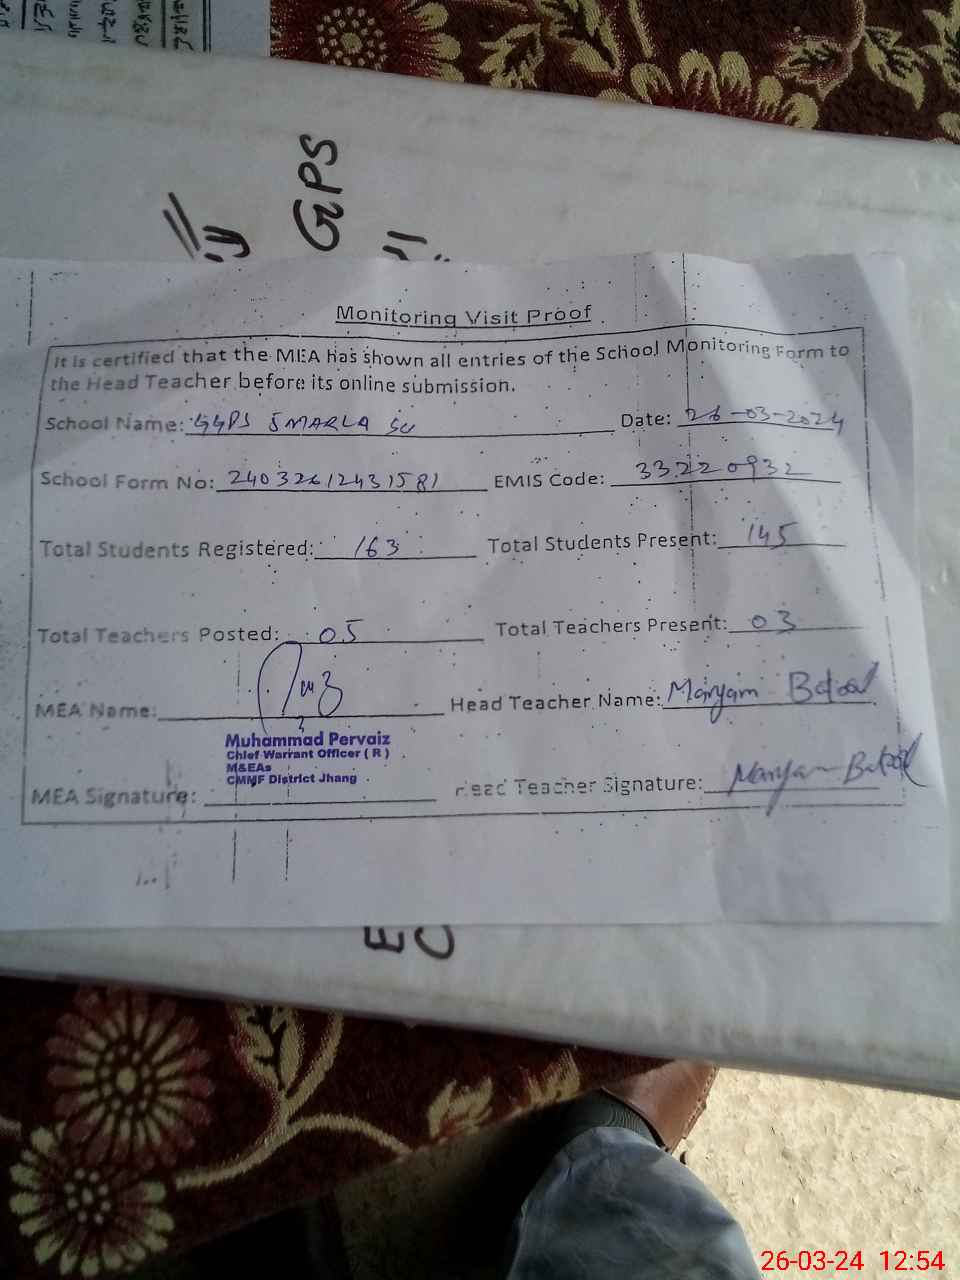 GPS
Monitoring Visit Proof
It is certified that the MEA has shown all entries of the School Monitoring Form to
the Head Teacher before its online submission.
School Name: GGPS 5 MARLA SC Date: 26-03-2024
School Form No: 24032612431581 EMIS Code: 33220932
Total Students Registered: 163 Total Students Present: 145
Total Teachers Posted: 05 Total Teachers Present: 03
MEA Name: Head Teacher Name: Maryam Batool
Muhammad Pervaiz
Chief Warrant Officer ( R )
M&EAs
CMMF District Jhang
MEA Signature: Head Teacher Signature: Maryam Batool
26-03-24 12:54